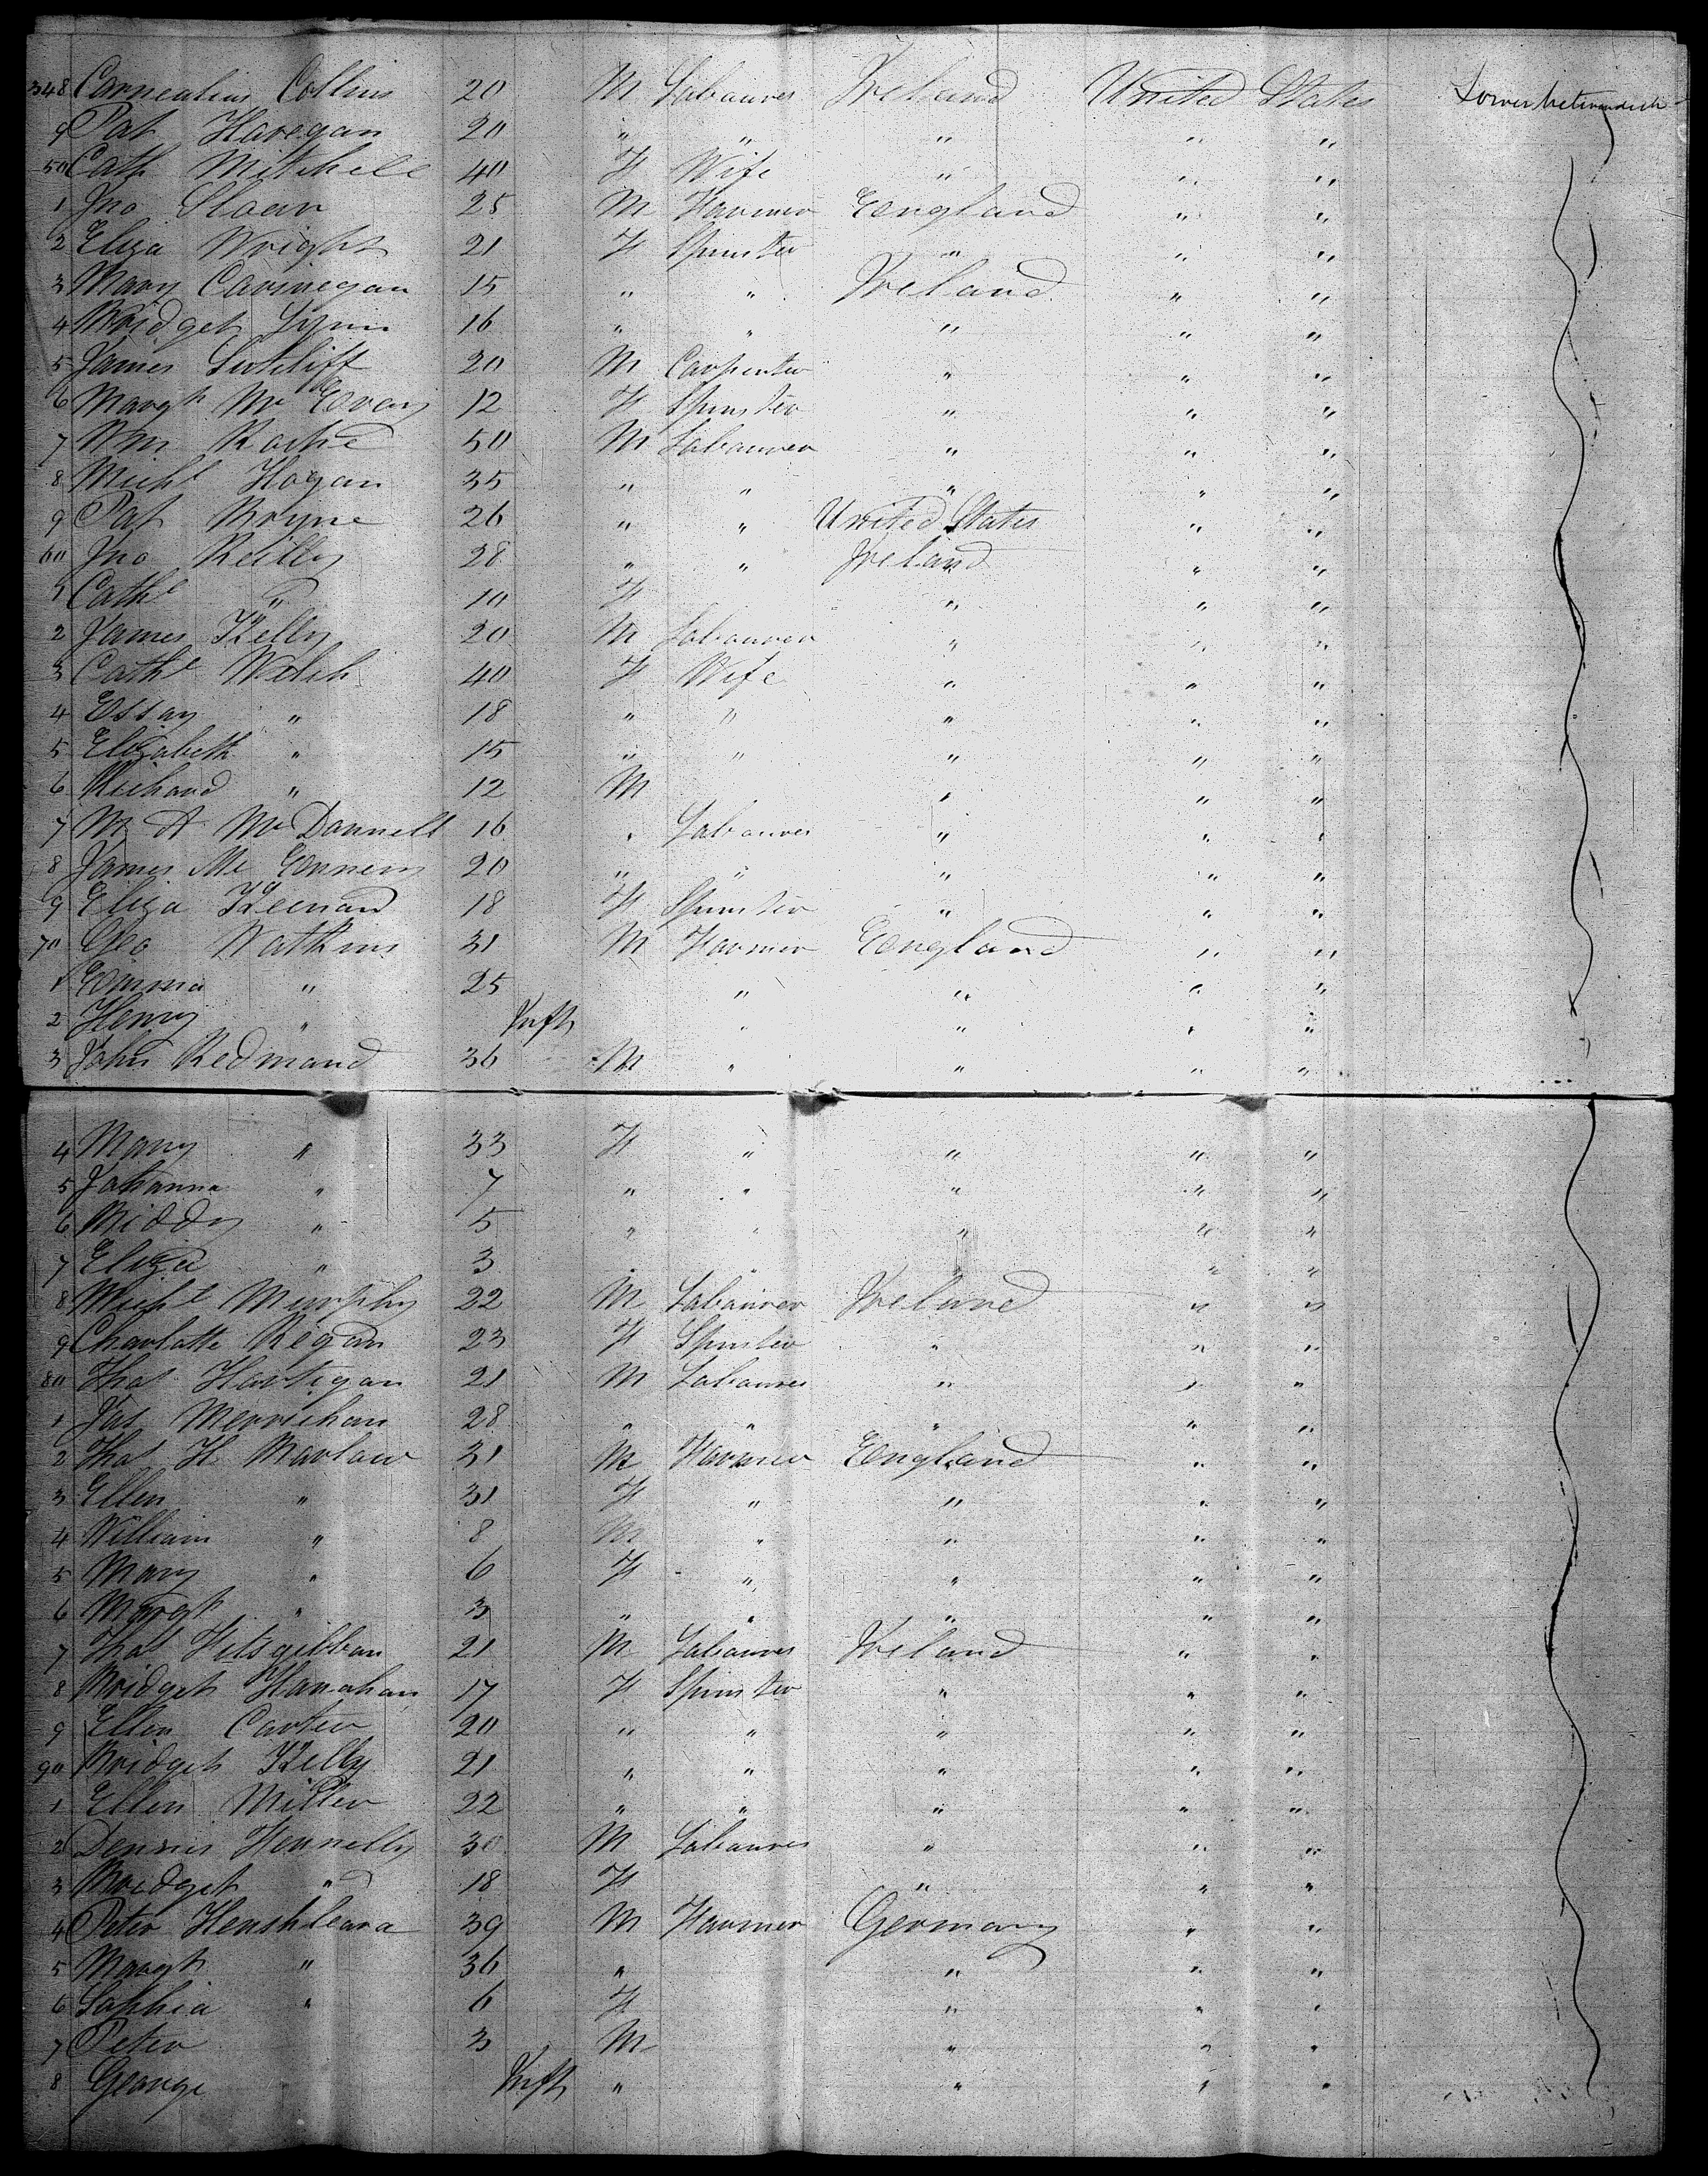 348 Cornealius Collins 20 M Labourer Ireland United States
9 Pat Haregan 20 " " " " "
50 Cath Mitchell 40 F Wife " " "
1 Jno Sloan 25 M Farmer England " "
2 Eliza Wright 21 F Spinster " " "
3 Mary Carnegan 15 " " Ireland " "
4 Bridget Lynn 16 " " " " "
5 James Sutcliff 20 M Carpenter " " "
6 Margt Mc Evoy 12 F Spinster " " "
7 Wm 50 M Labourer " " "
8 Michl Hogan 35 " " " " "
9 Pat Bryne 26 " " United States " "
60 Jno Reilly 28 " " Ireland " "
1 Cathe " 10 F " " "
2 James Kelly 20 M Labourer " " "
3 Cathe Welch 40 F Wife " " "
4 Essay " 18 " " " " "
5 Elizabeth " 15 " " " " "
6 Richard " 12 M " " "
7 M A Mc Donnell 16 " Labourer " " "
8 James Mc 20 " " " " "
9 Eliza Keenan 18 F Spinster " " "
70 Geo Watkins 31 M Farmer England " "
1 Emma " 25 " " " "
2 Henry " Inft " " " "
3 John Redmond 36 M " " " "
4 Mary " 33 F " " " "
5 Johanna " 7 " " " " "
6 Biddy " 5 " " " " "
7 Eliza " 3 " " " " "
8 Michl Murphy 22 M Labourer Ireland " "
9 Charlotte Regan 23 F Spinster " " "
80 Thos Hartigan 21 M Labourer " " "
1 Jas Merrichan 28 " " " " "
2 Thos H Barlow 31 M Farmer England " "
3 Ellen " 31 F " " " "
4 William " 8 M " " " "
5 Mary " 6 F " " " "
6 Margt " 3 " " " " "
7 Thos Fitsgibban 21 M Labourer Ireland " "
8 Bridget Hanahan 17 F Spinster " " "
9 Ellen Carter 20 " " " " "
90 Bridget Kelly 21 " " " " "
1 Ellen Miller 22 " " " " "
2 Dennis Hennelly 30 M Labourer " " "
3 Bridget " 18 F " " "
4 Peter 39 M Farmer Germany " "
5 Margt " 36 " " " "
6 Sophia " 6 F " " "
7 Peter 3 M " " "
8 George Inft " " " "